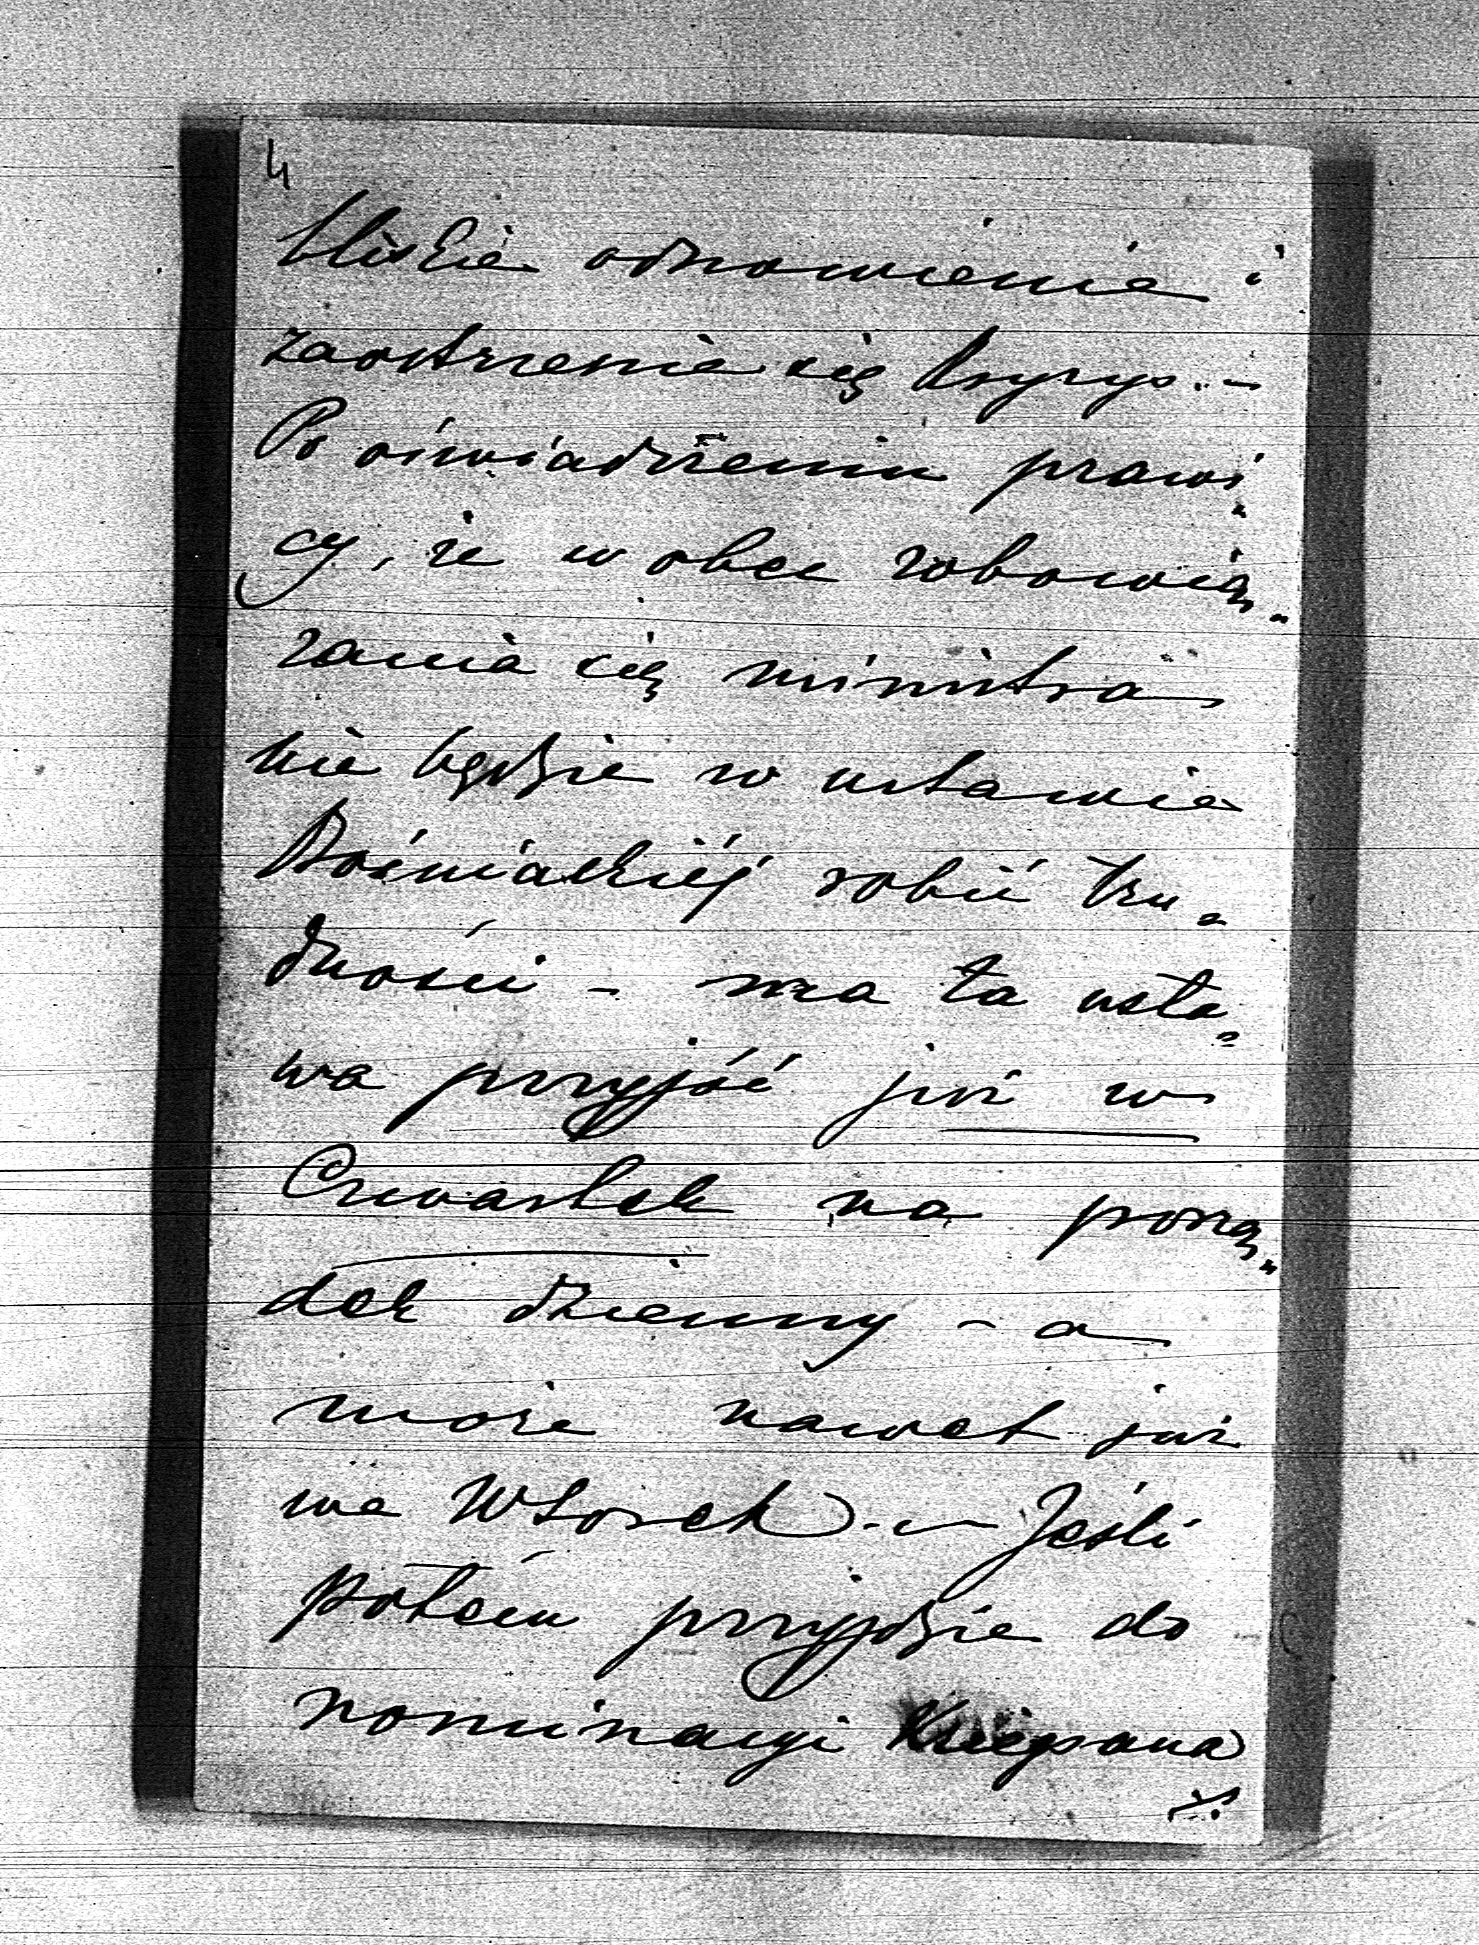 4
bliskie odnowienie i
zaostrzenie się kryzys. -
Po oświadczeniu prawi„
cy, że wobec zobowią„
zania się ministra
nie będzie w ustawie
Bośniackiéj robić tru„
dności - ma ta usta„
wa przyjść już w
Czwartek na porzą„
dek dzienny - a
może nawet już
we Wtorek. - Jeśli
potém przyjdzie do
nominacyi